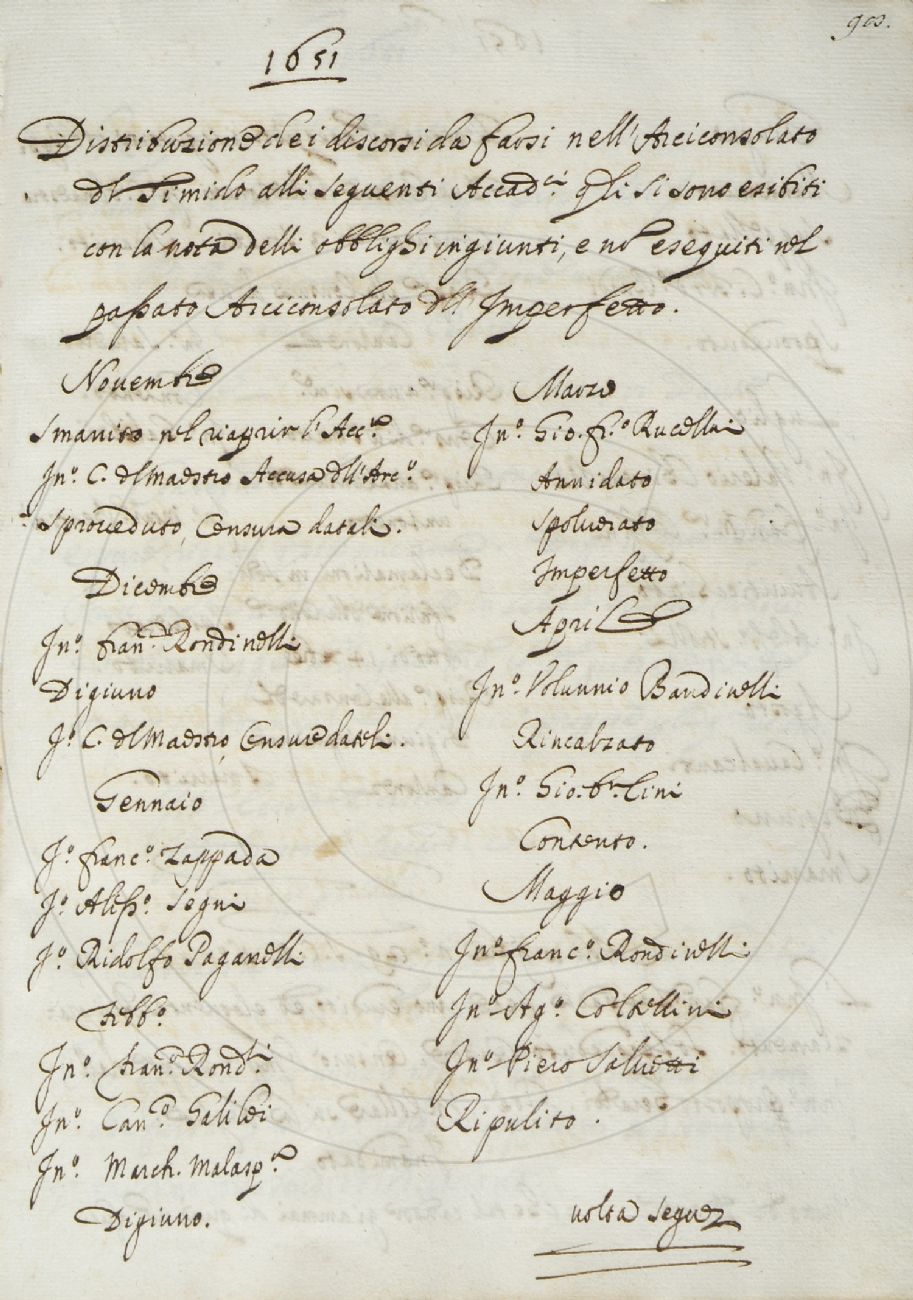 903.
1651
Distribuzione dei discorsi da farsi nell'Arciconsolato
dl Timido alli seguenti Accad.ci q.li si sono esibiti
con la nota delli obblighi ingiunti, e nō eseguiti nel
passato Arciconsolato dll' Imperfetto.
Novembre
Smarrito nel riaprir l'Acc.a
In.o C. dl Maestro Accusa dll'Arc.o
Sproveduto, Censura datali.
Dicembre
In.o Fran.co Rondinelli
Digiuno
I.o C. dl Maestro, Censure dateli.
Gennaio
I.o Franc.o Zappada
I.o Aless.o Segni
I.o Ridolfo Paganelli
Febb.o
In.o Fran.co Rond.li
In.o Can.co Galilei
In.o March. Malasp.a
Digiuno.
Marzo
In.o Gio. Fr.o Rucellai
Annidato
Spolverato
Imperfetto
Aprile
In.o Volunnio Bandinelli
Rincalzato
In.o Gio. Br. Lini
Contento.
Maggio
In.o Franc.o Rondinelli
In.o Ag.o Coltellini
In.o Piero Salvetti
Ripulito.
volta segue